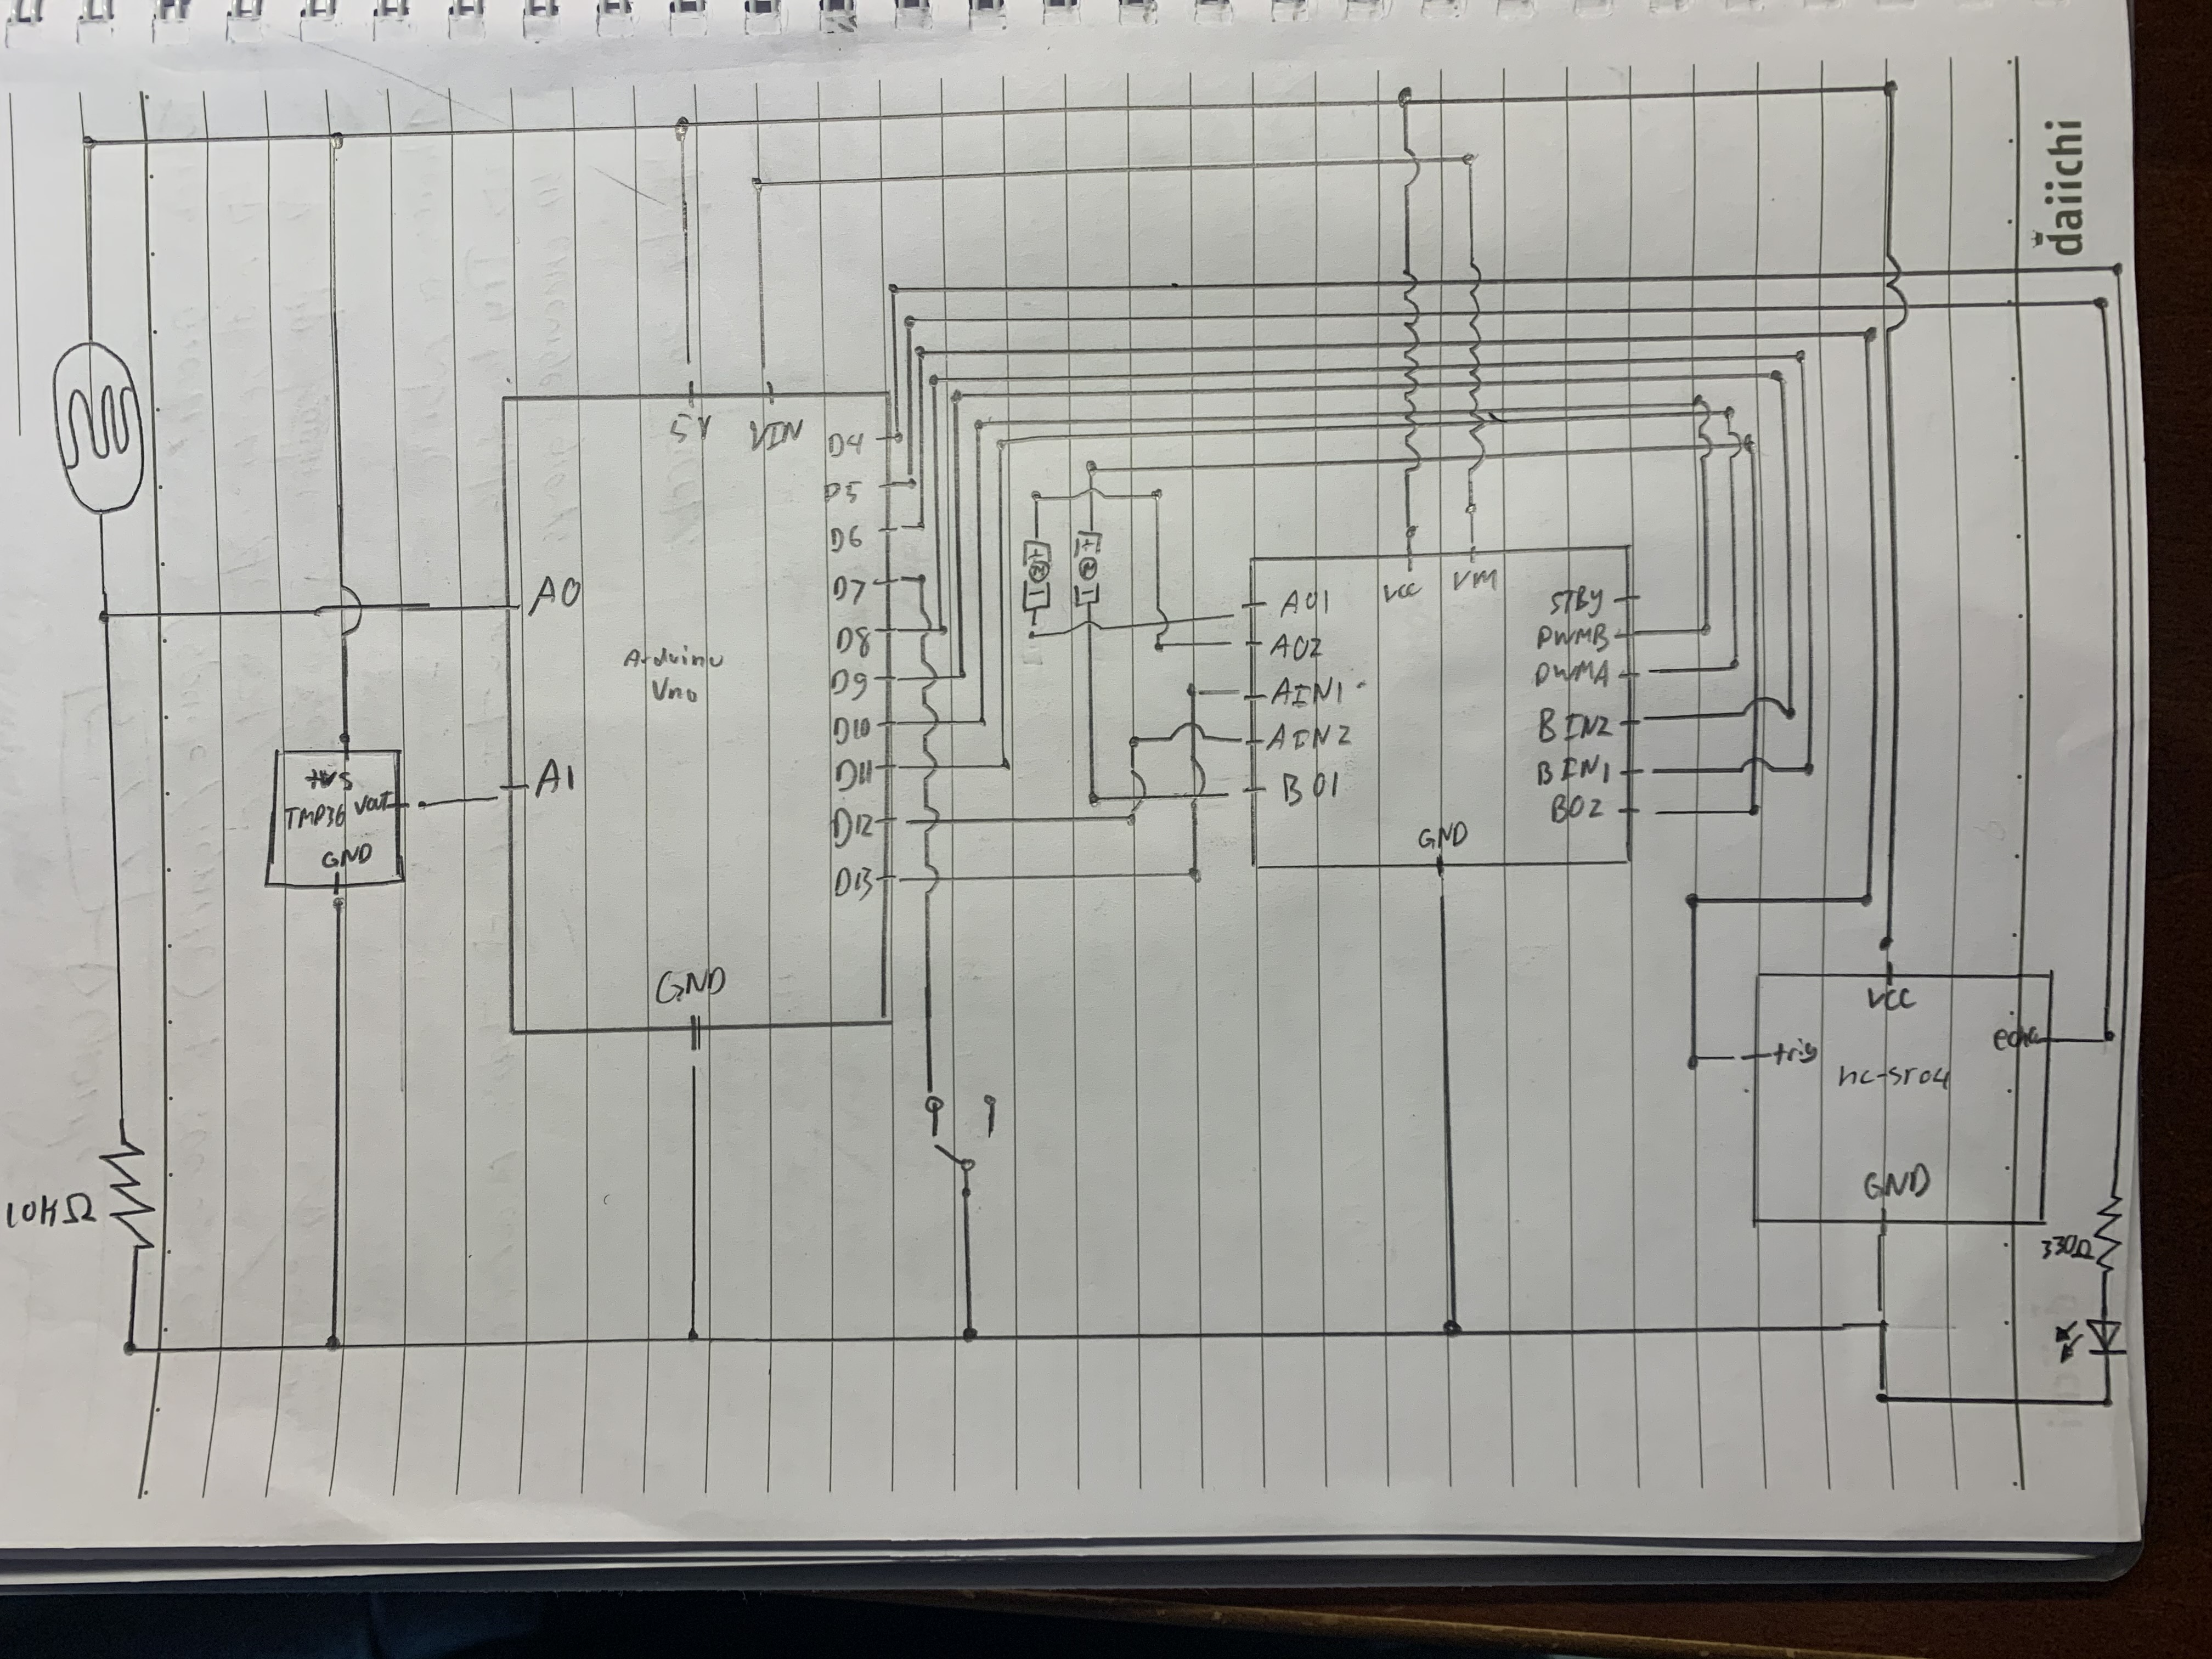 10kΩ
+VS
TMP36
Vout
GND
A0
A1
Arduino
Uno
5V
VIN
GND
D4
D5
D6
D7
D8
D9
D10
D11
D12
D13
+
M
-
+
M
-
A01
A02
AIN1
AIN2
B01
Vcc
VM
GND
STBY
PWMB
PWMA
BIN2
BIN1
B02
trig
HC-SR04
VCC
GND
echo
330Ω
daiichi